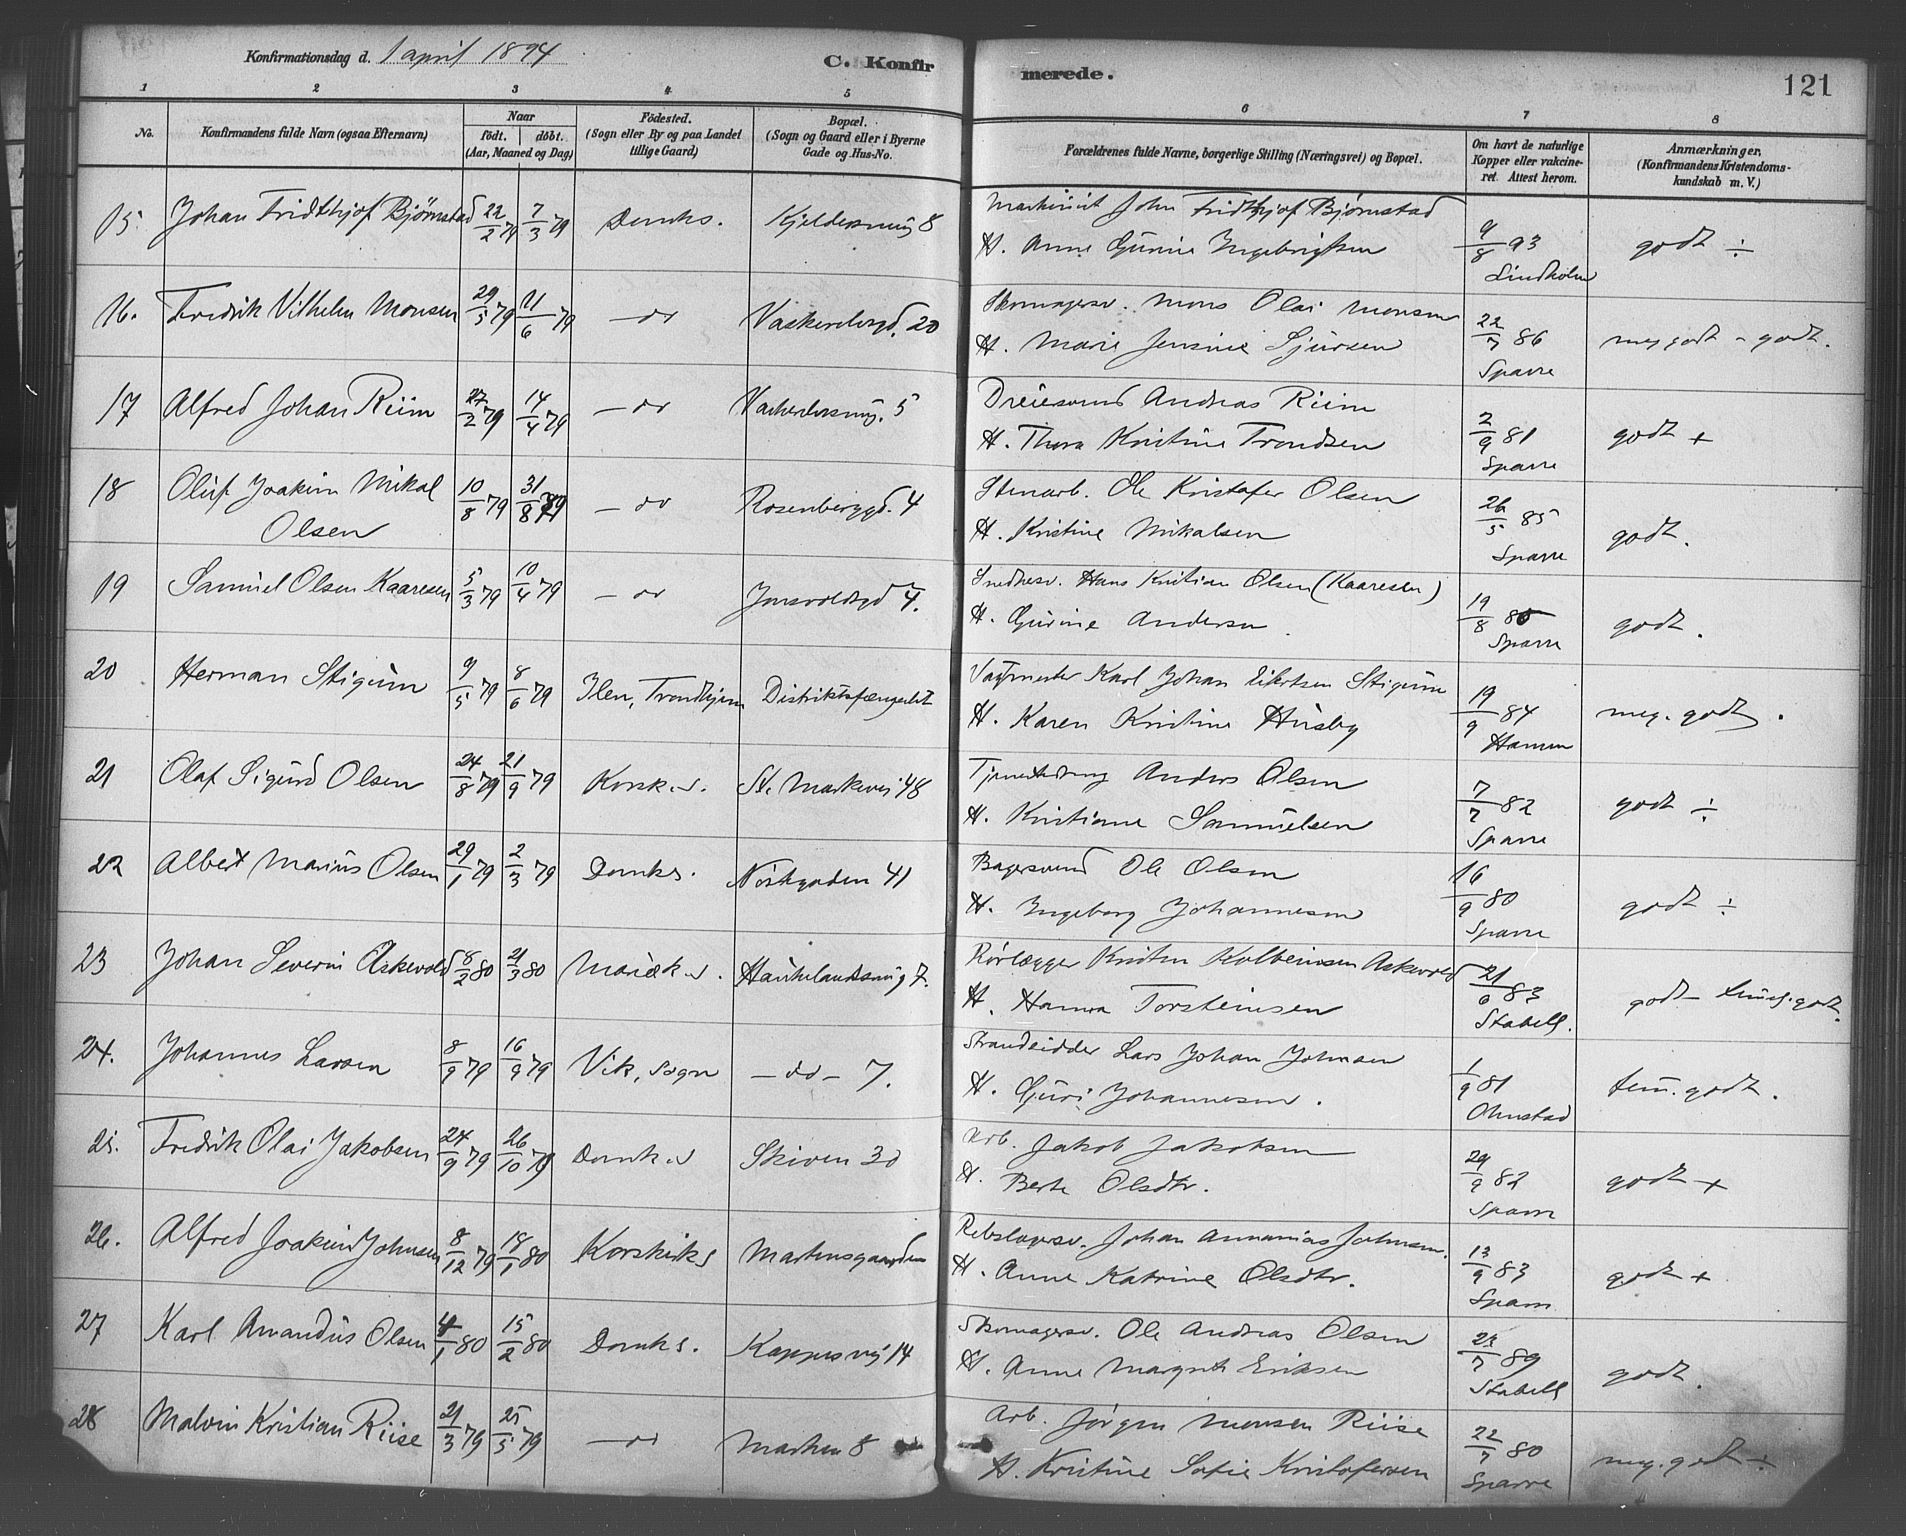 Konfirmationsdag d. 1 april 1894
C. Konfirmerede.
121
1 2 3 4 5 6 7 8
No.
Konfirmandens fulde Navn (ogsaa Efternavn)
Naar
födt. döbt.
(Aar, Maaned og Dag)
Födested.
(Sogn eller By og paa Landet
tillige Gaard)
Bopæl.
(Sogn og Gaard eller i Byerne
Gade og Hus-No.
Forældrenes fulde Navne, borgerlige Stilling (Næringsvei) og Bopæl.
Om havt de naturlige
Kopper eller vakcine-
ret. Attest herom.
Anmærkninger.
(Konfirmandens Kristendoms-
kundskab m. V.)
15. Johan Fridthjof Bjørnstad 22/2 79 7/3 79 Domks. 8
John Fridthjof Bjørnstad
H. Anne Gurine Ingebrigtsen 9/8 93 Lindholm godt ÷
16. Fredrik Vilhelm Monsen 29/5 79 11/6 79 - do 20
Skomagersv. Mons Olai Monsen
H. Marie Jensine Sjursen 22/7 86 Sparre meg godt - godt.
17 Alfred Johan Riim 27/2 79 14/4 79 - do 5
Dreiesvend Andreas Riim
H. Thora Kristine Trondsen 2/9 81 Sparre godt +
18 Oluf Joakim Mikal
Olsen 10/8 79 31/8 79 - do Rosenberggd. 4
Stenarb. Ole Kristofer Olsen
H. Kristine Mikalsen 26/5 85 Sparre godt.
19 Samuel Olsen Kaaresen 5/3 79 10/4 79 - do Jonsvoldsgd 4.
Snedkersv. Hans Kristian Olsen (Kaaresen)
H. Gurine Andersen 19/8 Sparre godt.
20 Herman Stigum 9/5 79 8/6 79 Ilen, Trondhjem Distriktsfængselet
Vagtmester Karl Johan Stigum
H. Karen Kristine Husby 19/9 84 Hansen meg. godt.
21 Olaf Sigurd Olsen 24/8 79 21/9 79 Korsk.s. St. Markevei 48
Anders Olsen
H. Kristiane Samuelsen 7/7 82 Sparre godt ÷
22 Albert Marius Olsen 29/1 79 2/3 79 Domks. Nöstegaden 41
Bagersvend Ole Olsen
H. Ingeborg Johannesen 16/9 80 Sparre godt ÷
23 Johan Severin Askevold 8/2 80 21/3 80 Mariæk.s. Haukelandsmug 7.
Rörlægger Kristen Kolbeinsen Askevold
H. Hanna Torsteinsen 21/6 83 Stabell. godt - temel. godt.
24. Johannes Larsen 8/9 79 16/9 79 Vik, Sogn - do - 7.
Strandsidder Lars Johan Johnsen
H. Guri Johannesen. 1/9 81 Ohnstad tem. godt.
25. Fredrik Olai Jakobsen 24/9 79 26/10 79 Domk.s Skiven 30
Arb. Jakob Jakobsen
H. Berte Olsdtr. 29/9 82 Sparre godt +
26. Alfred Joakim Johnsen 8/12 79 18/1 80 Korskirks Martensgaarden
Rebslagersv. Johan Annanias Johnsen.
H. Anne Katrine Olsdtr. 13/9 83 Sparre godt +
27 Karl Amandus Olsen 4/1 80 15/2 80 Domks. Kappesvei 14
Skomagersv. Ole Andreas Olsen
H. Anne Margrete Eriksen 22/7 89 Stabell godt.
28 Malvin Kristian Riise 21/3 79 25/5 79 - do Marken 8
Arb. Jørgen Monsen Riise
H. Kristine Sofie Kristofersen 22/7 80 Sparre meg. godt +